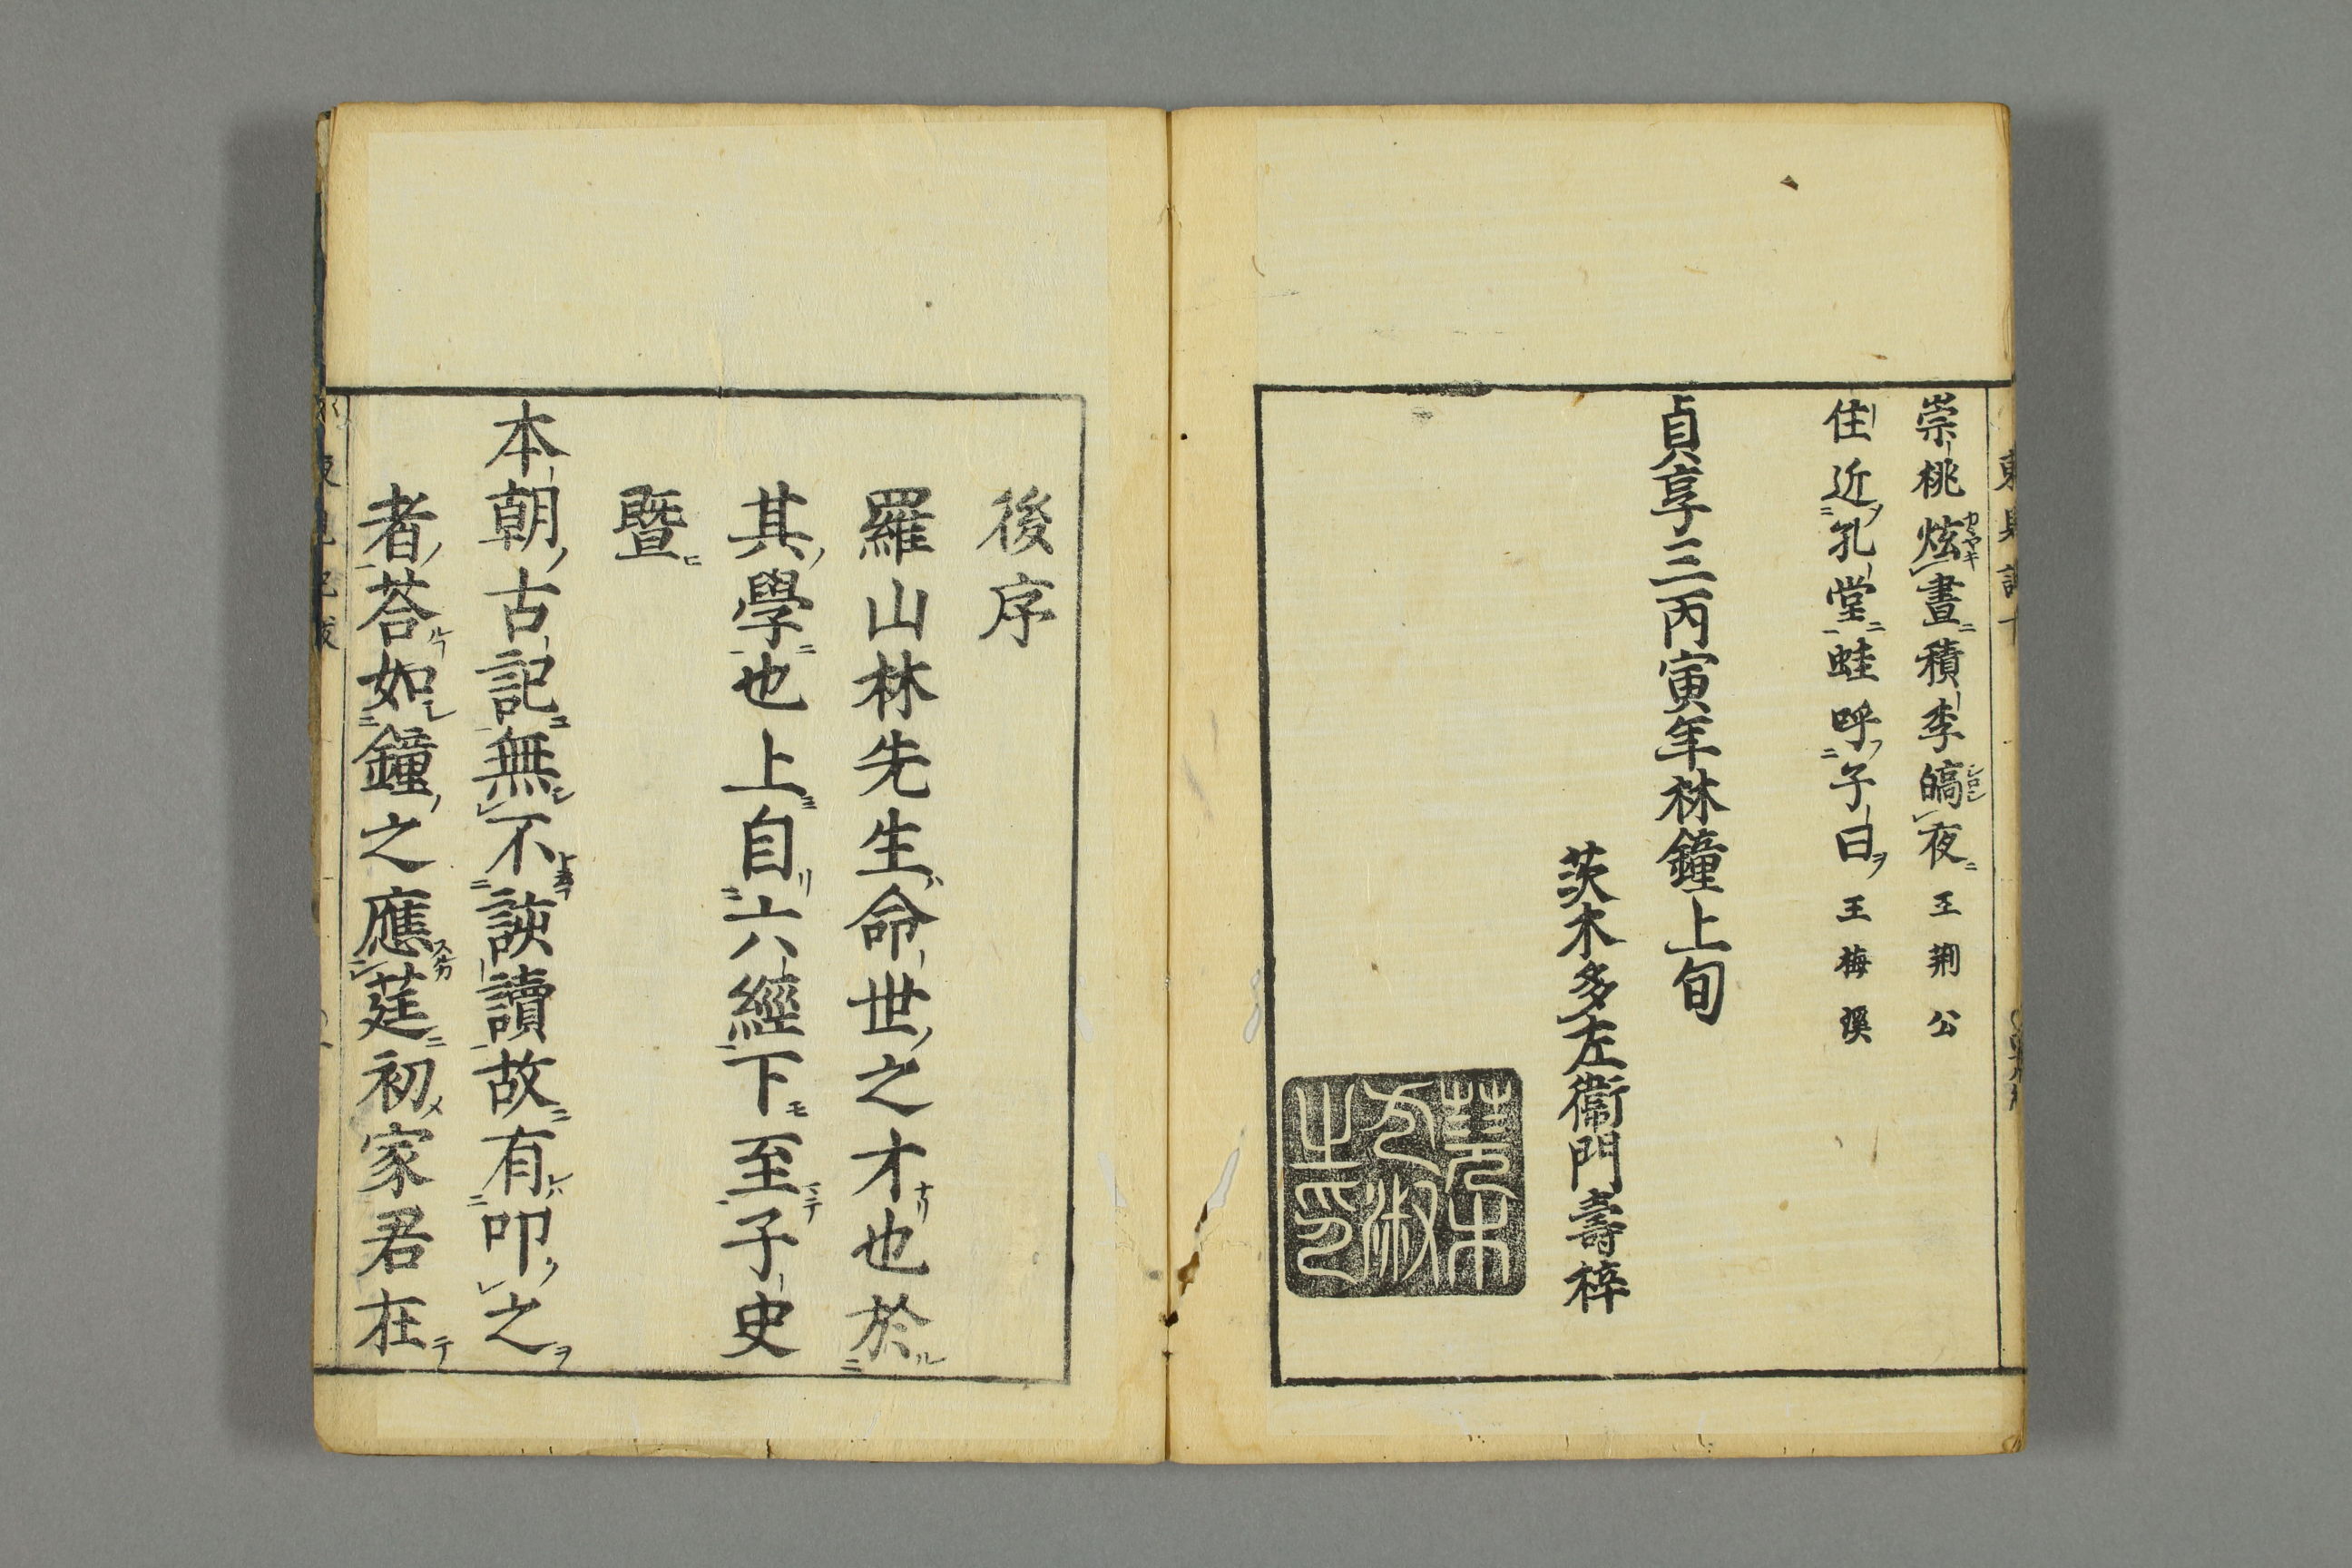 崇桃炫晝積李皜夜 王荆公
住近孔堂蛙呼子曰 王梅溪
貞享三丙寅年林鐘上旬
茨木多左衞門壽梓
後序
羅山林先生命世之才也於
其學也上自六經下至子史
曁
本朝古記無不該讀故有叩之
者荅如鐘之應莛初家君在